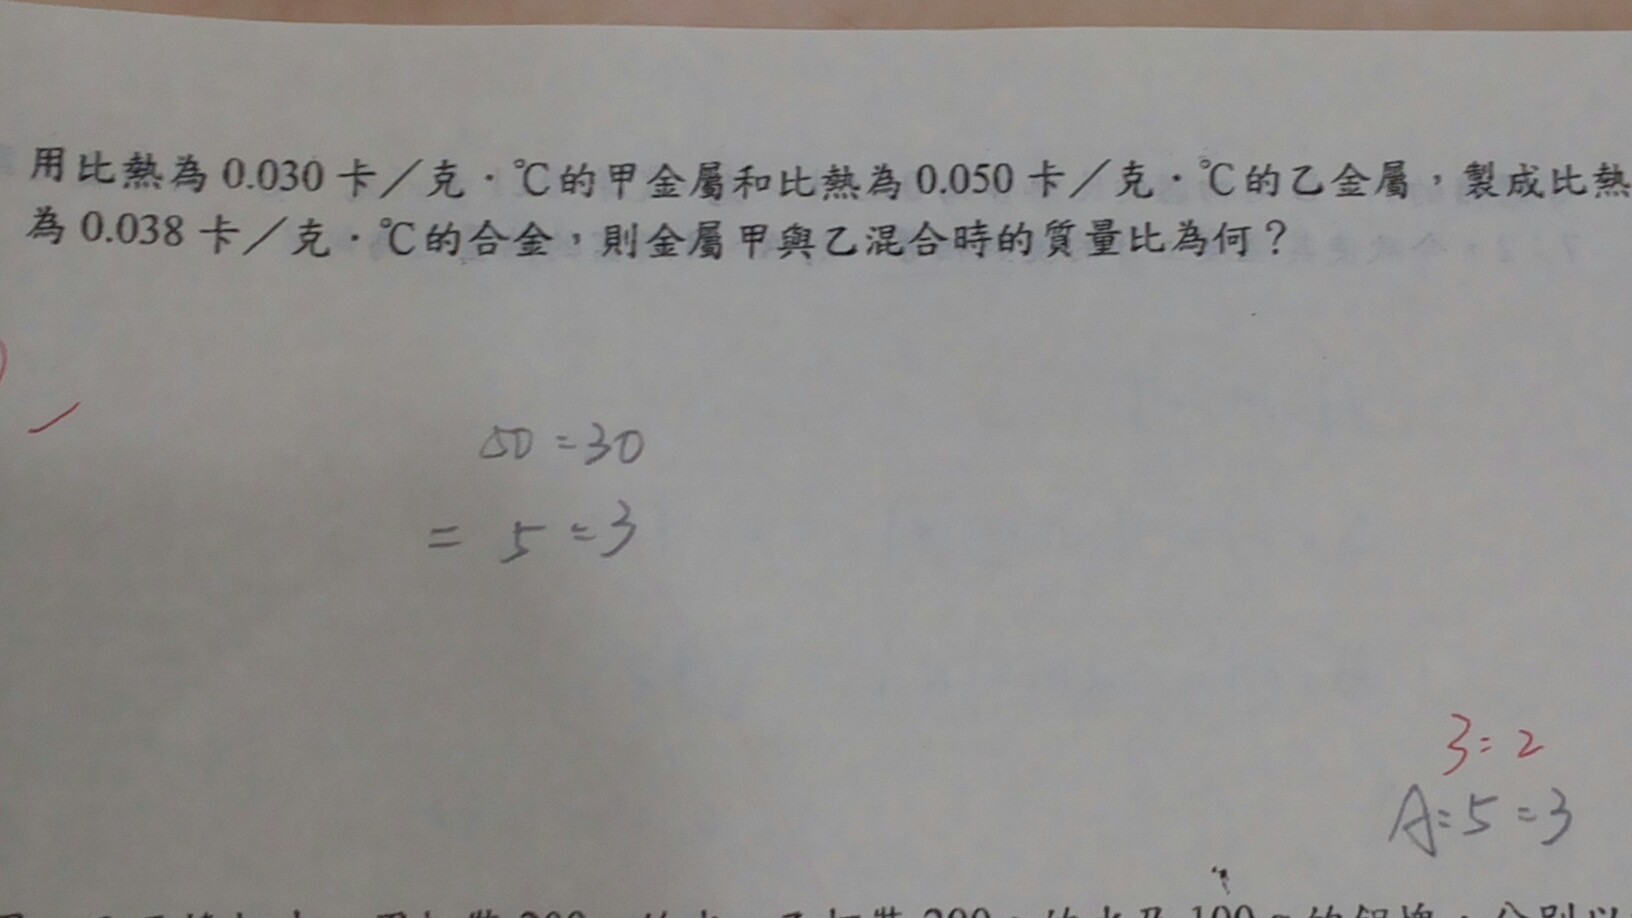 用比熱為 0.030 卡／克．℃的甲金屬和比熱為 0.050 卡／克．℃的乙金屬，製成比熱
為 0.038 卡／克．℃的合金，則金屬甲與乙混合時的質量比為何？
50=30
= 5=3
3:2
A:5=3